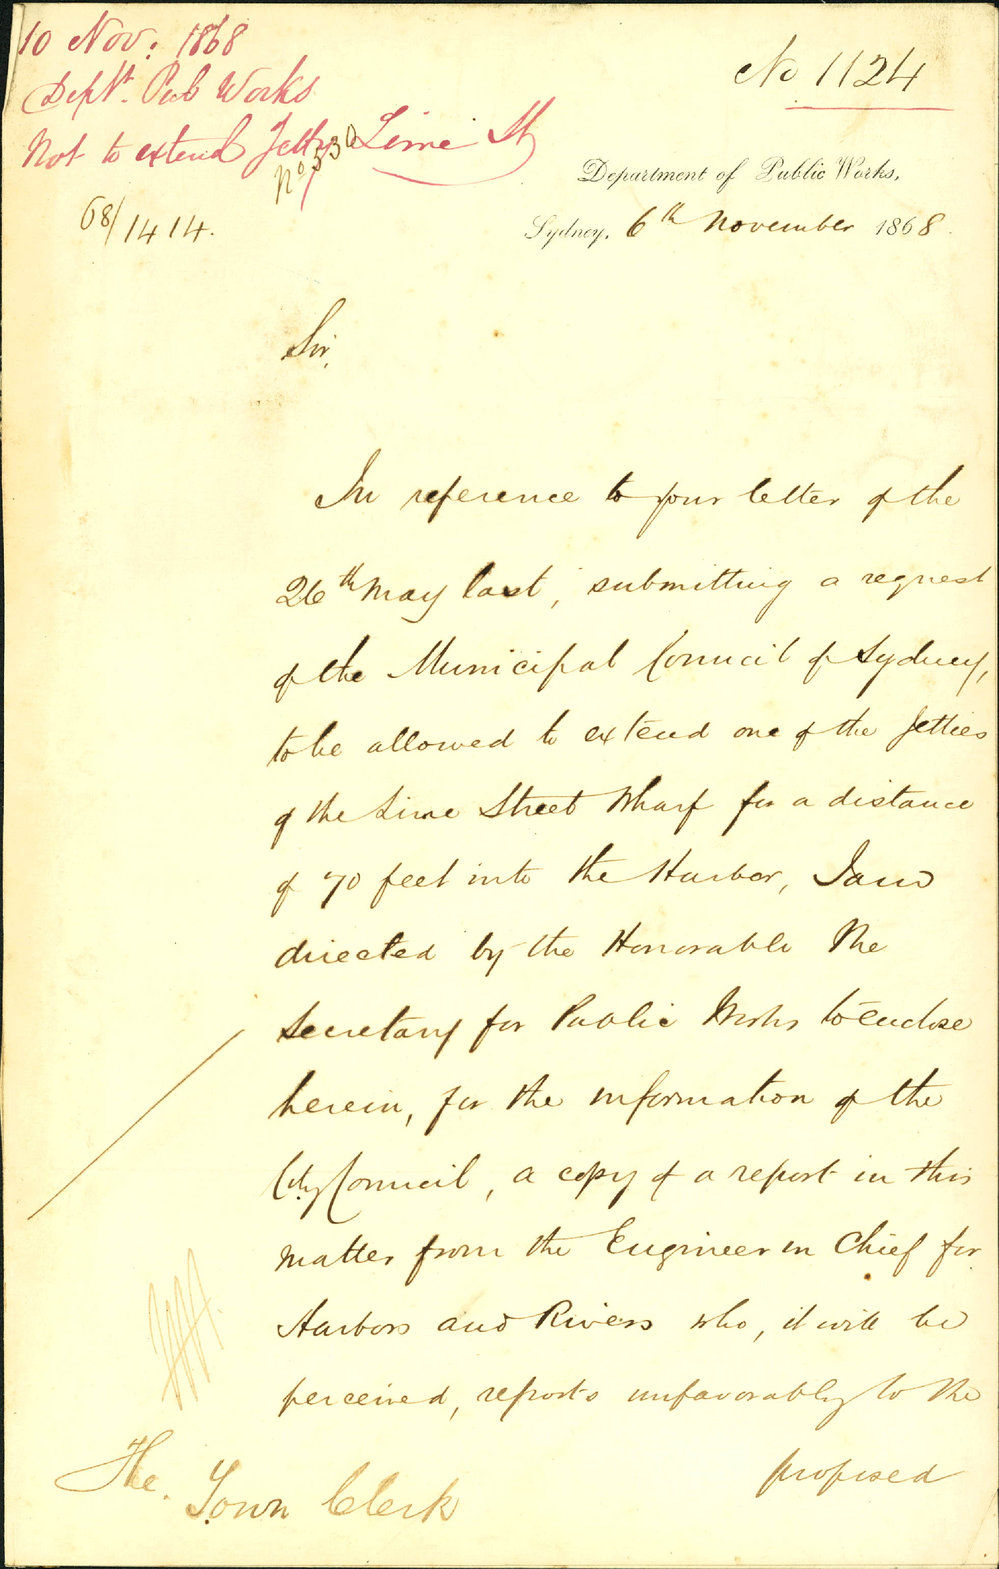 10 Nov. 1868
Deptt. Pub Works
Not to extend Jetty Lime St
No 530
68/1414.
No 1124
Department of Public Works,
Sydney, 6th November 1868.
Sir,
In reference to your letter of the
26th May last, submitting a request
of the Municipal Council of Sydney,
to be allowed to extend one of the Jetties
of the Lime Street Wharf for a distance
of 70 feet into the Harbor, I am
directed by the Honorable The
Secretary for Public Works to enclose
herein, for the information of the
City Council, a copy of a report in this
matter from the Engineer in Chief for
Harbors and Rivers who, it will be
perceived, reports unfavorably to the
proposed
The Town Clerk